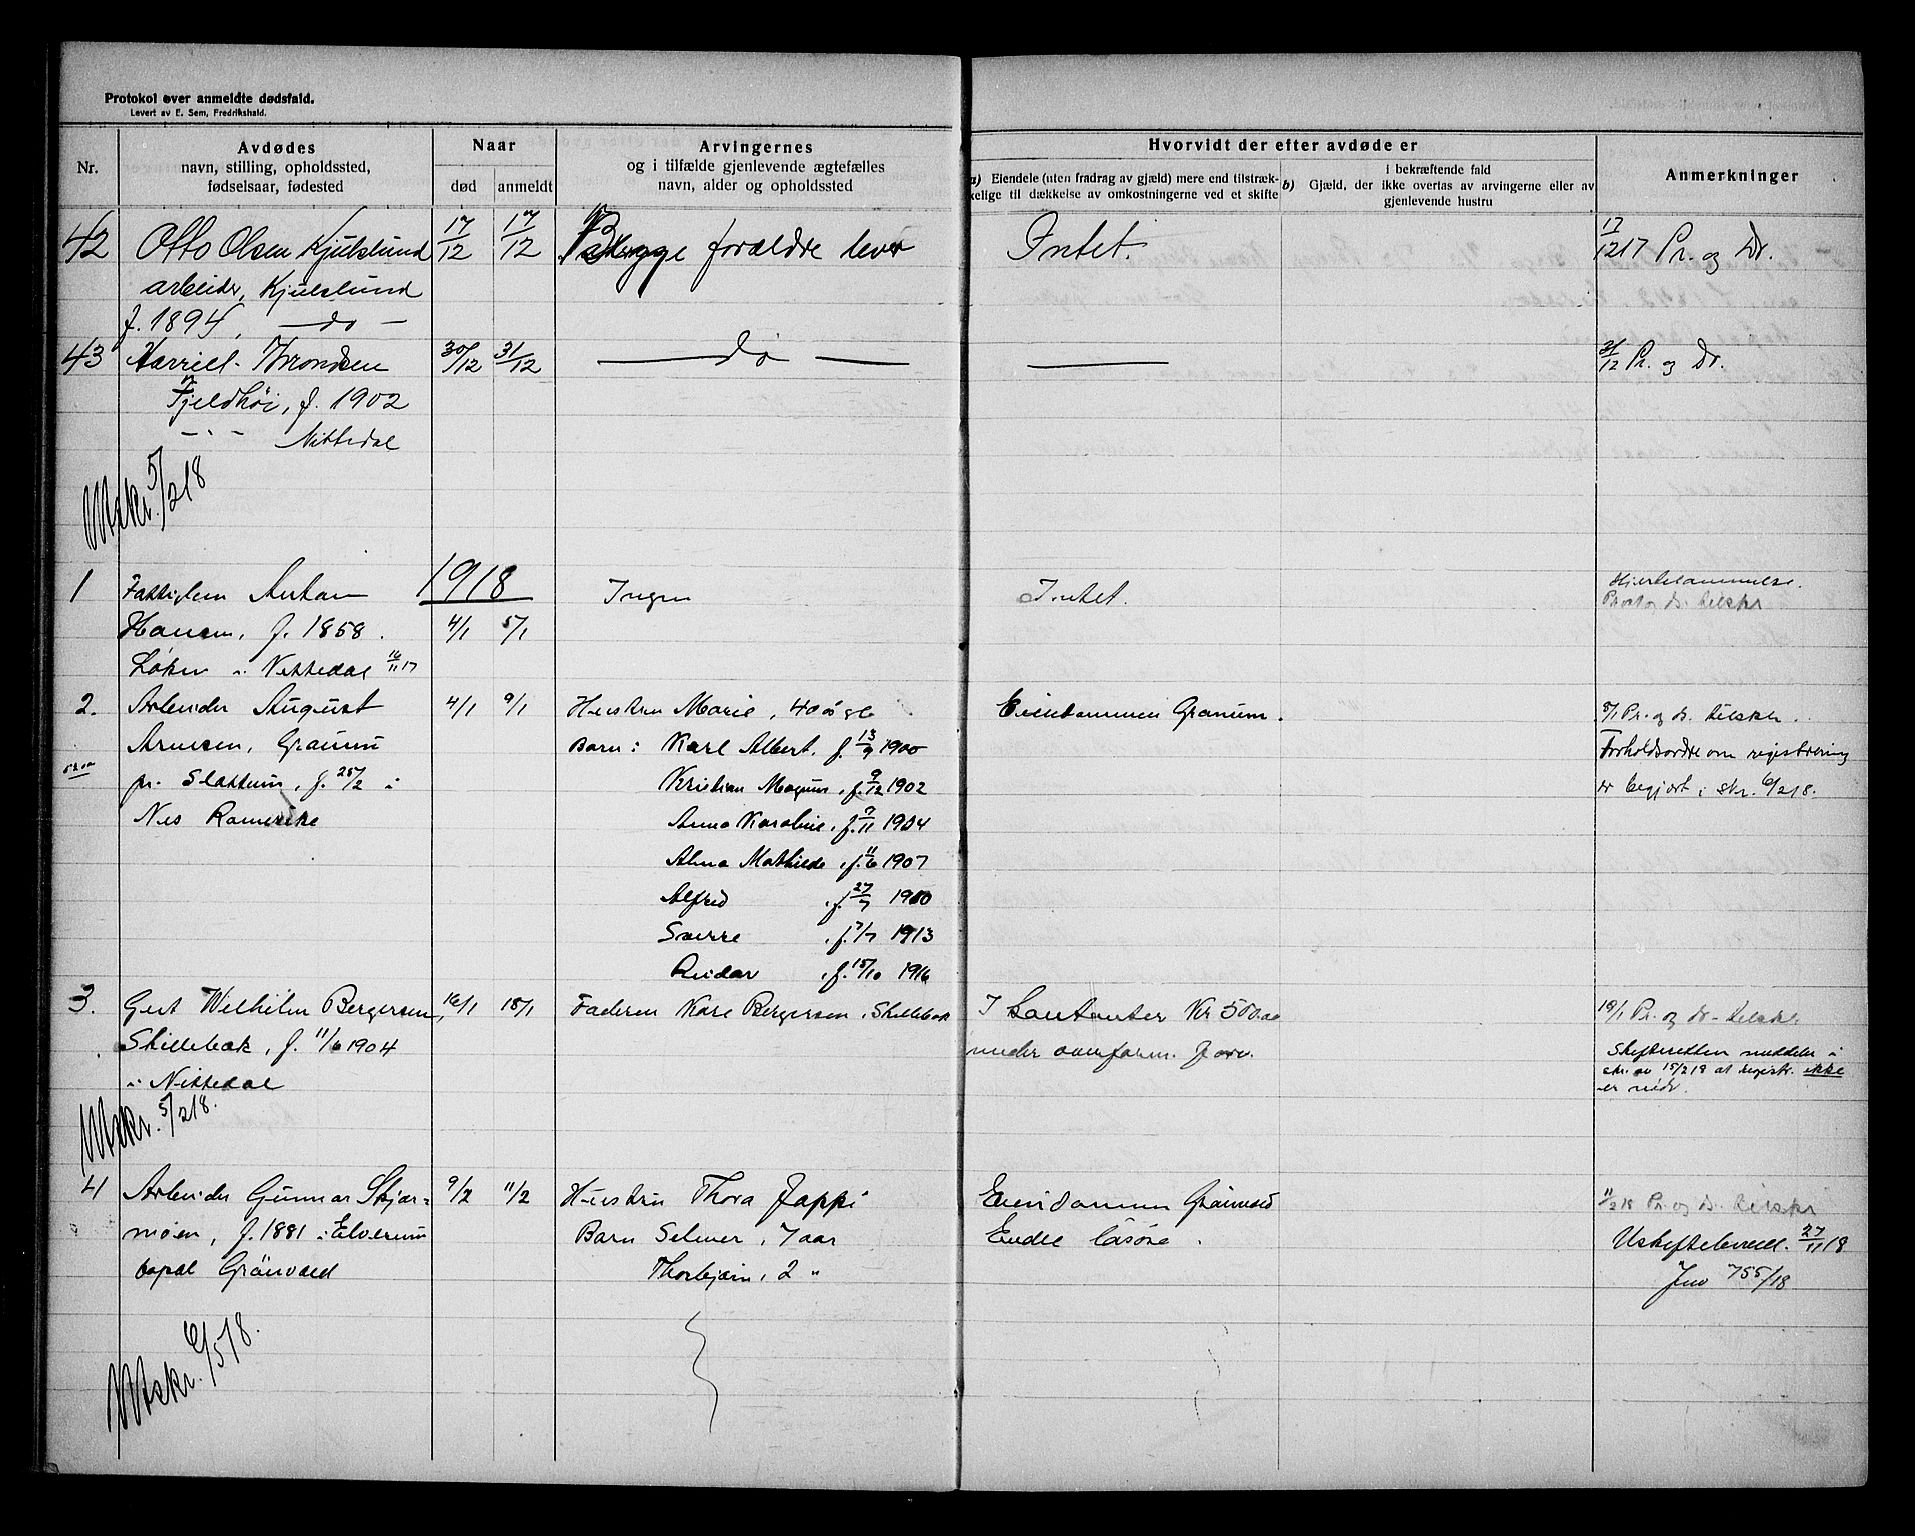 Protokol over anmeldte dødsfald.
Levert av E. Sem, Fredrikshald.
Nr.
Avdødes
navn, stilling, opholdssted,
fødselsaar, fødested
Naar
død
anmeldt
Arvingernes
og i tilfælde gjenlevende ægtefælles
navn, alder og opholdssted
Hvorvidt der efter avdøde er
a) Eiendele (uten fradrag av gjæld) mere end tilstræk-
kelige til dækkelse av omkostningerne ved et skifte
i bekræftende fald
b) Gjæld, der ikke overtas av arvingerne eller av
gjenlevende hustru
Anmerkninger
42 Otto Olsen Kjulslund 17/12 17/12 Begge forældre lever Intet. 17/12 17 Pr. og Dr.
arbeider, Kjulslund
f. 1894, — do —
43 Harriet Trondsen 30/12 31/12 — do — — 31/12 Pr. og Dr.
Fjeldhöi, f. 1902
- " - Nittedal
Utskr. 5/2 18
1918
1 Fattiglem Anton Ingen Intet. Hjertelammelse.
Prest og Dr. tilskr
Hansen, f. 1858. 4/1 5/1
Løken i Nittedal 16/11 17
2. Arbeider August 4/1 9/1 Hustru Marie, 40 år gl. Eiendommen Granum. 9/1 Pr. og dr. tilskr.
Arnesen, Granum Barn: Karl Albert. f. 13/9 1900 Forholdsordre om registrering
pr. Slattum, f. 25/2 i Kristian Magnus, f. 9/12 1902 er begjært i skr. 6/2 18.
Nes Romerike Anna Karoline, f. 9/11 1904
Alma Mathilde, f. 11/6 1907
Alfred, f. 27/7 1910
Sverre, f. 7/7 1913
Reidar, f. 15/10 1916
3. Gert Wilhelm Bergersen, 16/1 18/1 Faderen Kare Bergersen, Skillebæk I kontanter Kr 500.00 18/1 Pr. og dr. tilskr
Skillebæk, f. 11/6 1904 under overform. forv. Skifteretten meddeler i
skr. av 15/2 18 at registr. ikke
i Nittedal er nødv.
Utskr. 5/2 18.
4 Arbeider Gunnar Skjær= 9/2 11/2 Hustru Thora Jappi Eiendommen Grönvold 11/2 18 Pr. og Dr. tilskr
moen, f. 1881 i Elverum Barn Selmer, 7 aar Endel løsøre. Uskiftebevill. 27/11 18
bopæl Grönvold Thorbjørn, 2 " Jno 755/18
Utskr. 6/5 18.